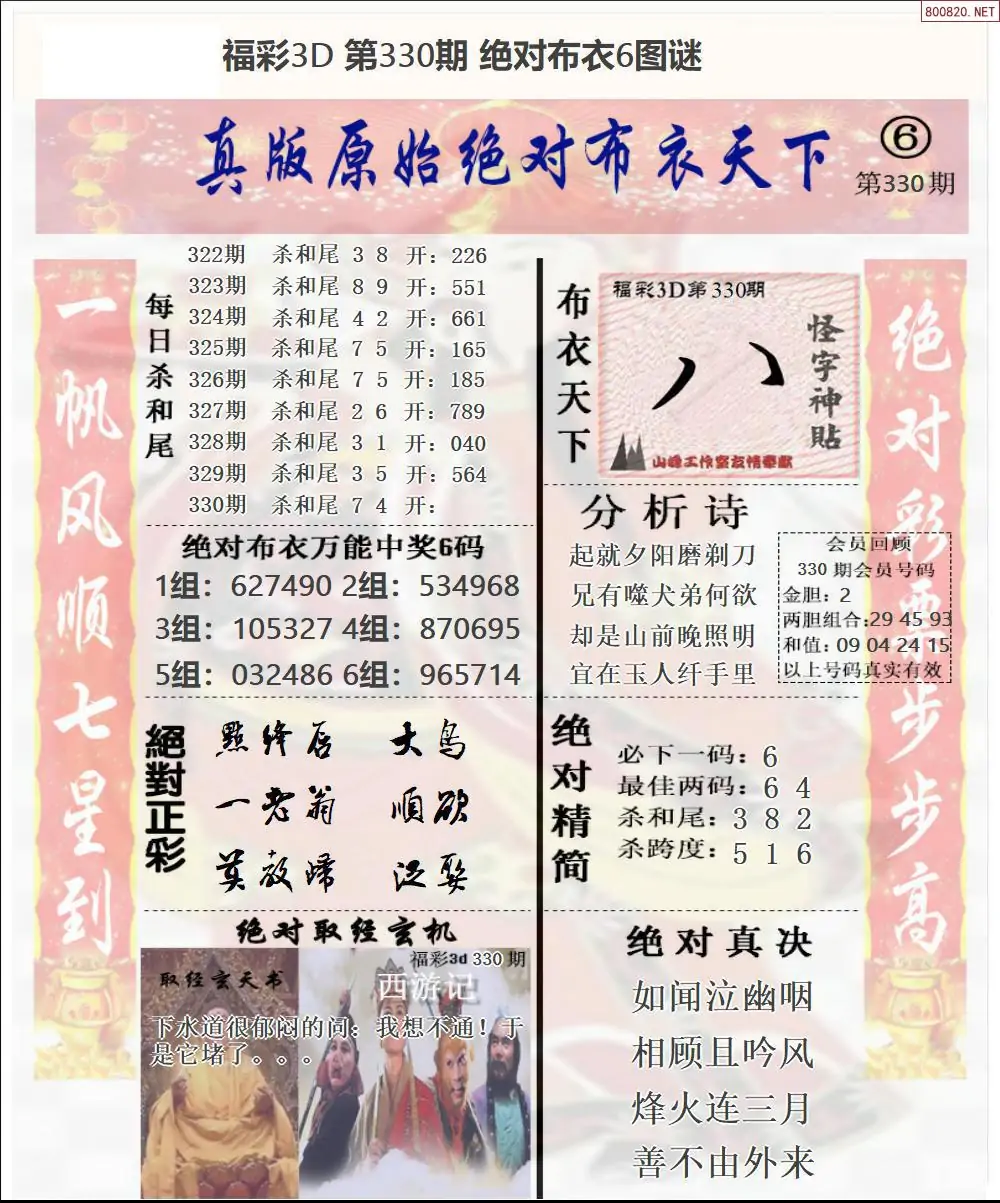 800820.NET
福彩3D 第330期 绝对布衣6图谜
真版原始绝对布衣天下
⑥
第330期
一帆风顺七星到
每日杀和尾
322期 杀和尾 3 8 开：226
323期 杀和尾 8 9 开：551
324期 杀和尾 4 2 开：661
325期 杀和尾 7 5 开：165
326期 杀和尾 7 5 开：185
327期 杀和尾 2 6 开：789
328期 杀和尾 3 1 开：040
329期 杀和尾 3 5 开：564
330期 杀和尾 7 4 开：
绝对布衣万能中奖6码
1组：627490 2组：534968
3组：105327 4组：870695
5组：032486 6组：965714
絕對正彩
點绛唇 大鸟
一老翁 順欲
莫教啼 泛娶
绝对取经玄机
福彩3d 330 期
取经玄天书
西游记
下水道很郁闷的问：我想不通！于
是它堵了。。。
布衣天下
福彩3D第330期
八
怪字神貼
山峰工作室友情奉献
分析诗
起就夕阳磨剃刀
兄有噬犬弟何欲
却是山前晚照明
宜在玉人纤手里
会员回顾
330 期会员号码
金胆：2
两胆组合:29 45 93
和值：09 04 24 15
以上号码真实有效
绝对精简
必下一码：6
最佳两码：6 4
杀和尾：3 8 2
杀跨度：5 1 6
绝对真决
如闻泣幽咽
相顾且吟风
烽火连三月
善不由外来
绝对彩票步步高